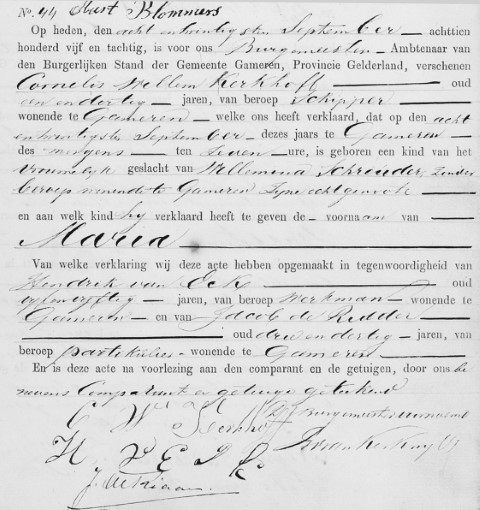 No. 44 Aart Blommers
Op heden, den acht en twintigsten September achttien
honderd vijf en tachtig, is voor ons Burgemeester Ambtenaar van
den Burgerlijken Stand der Gemeente Gameren, Provincie Gelderland, verschenen
Cornelis Willem Kerkhoff oud
een en dertig jaren, van beroep Schipper
wonende te Gameren welke ons heeft verklaard, dat op den acht
en twintigsten September dezes jaars te Gameren
des morgens ten zeven ure, is geboren een kind van het
vrouwelijk geslacht van Willemina Schreuder, zonder
beroep wonende te Gameren zijne echtgenoote
en aan welk kind hij verklaard heeft te geven de voornaam van
Maria
Van welke verklaring wij deze acte hebben opgemaakt in tegenwoordigheid van
Hendrik van Eck oud
jaren, van beroep Werkman wonende te
Gameren en van Jacob de Ridder
oud drie en dertig jaren, van
beroep partikulier wonende te Gameren
En is deze acte na voorlezing aan den comparant en de getuigen, door ons be
nevens Comparant en getuige geteekend
C W Kerkhoff De Burgemeester voornoemd
H V E C K